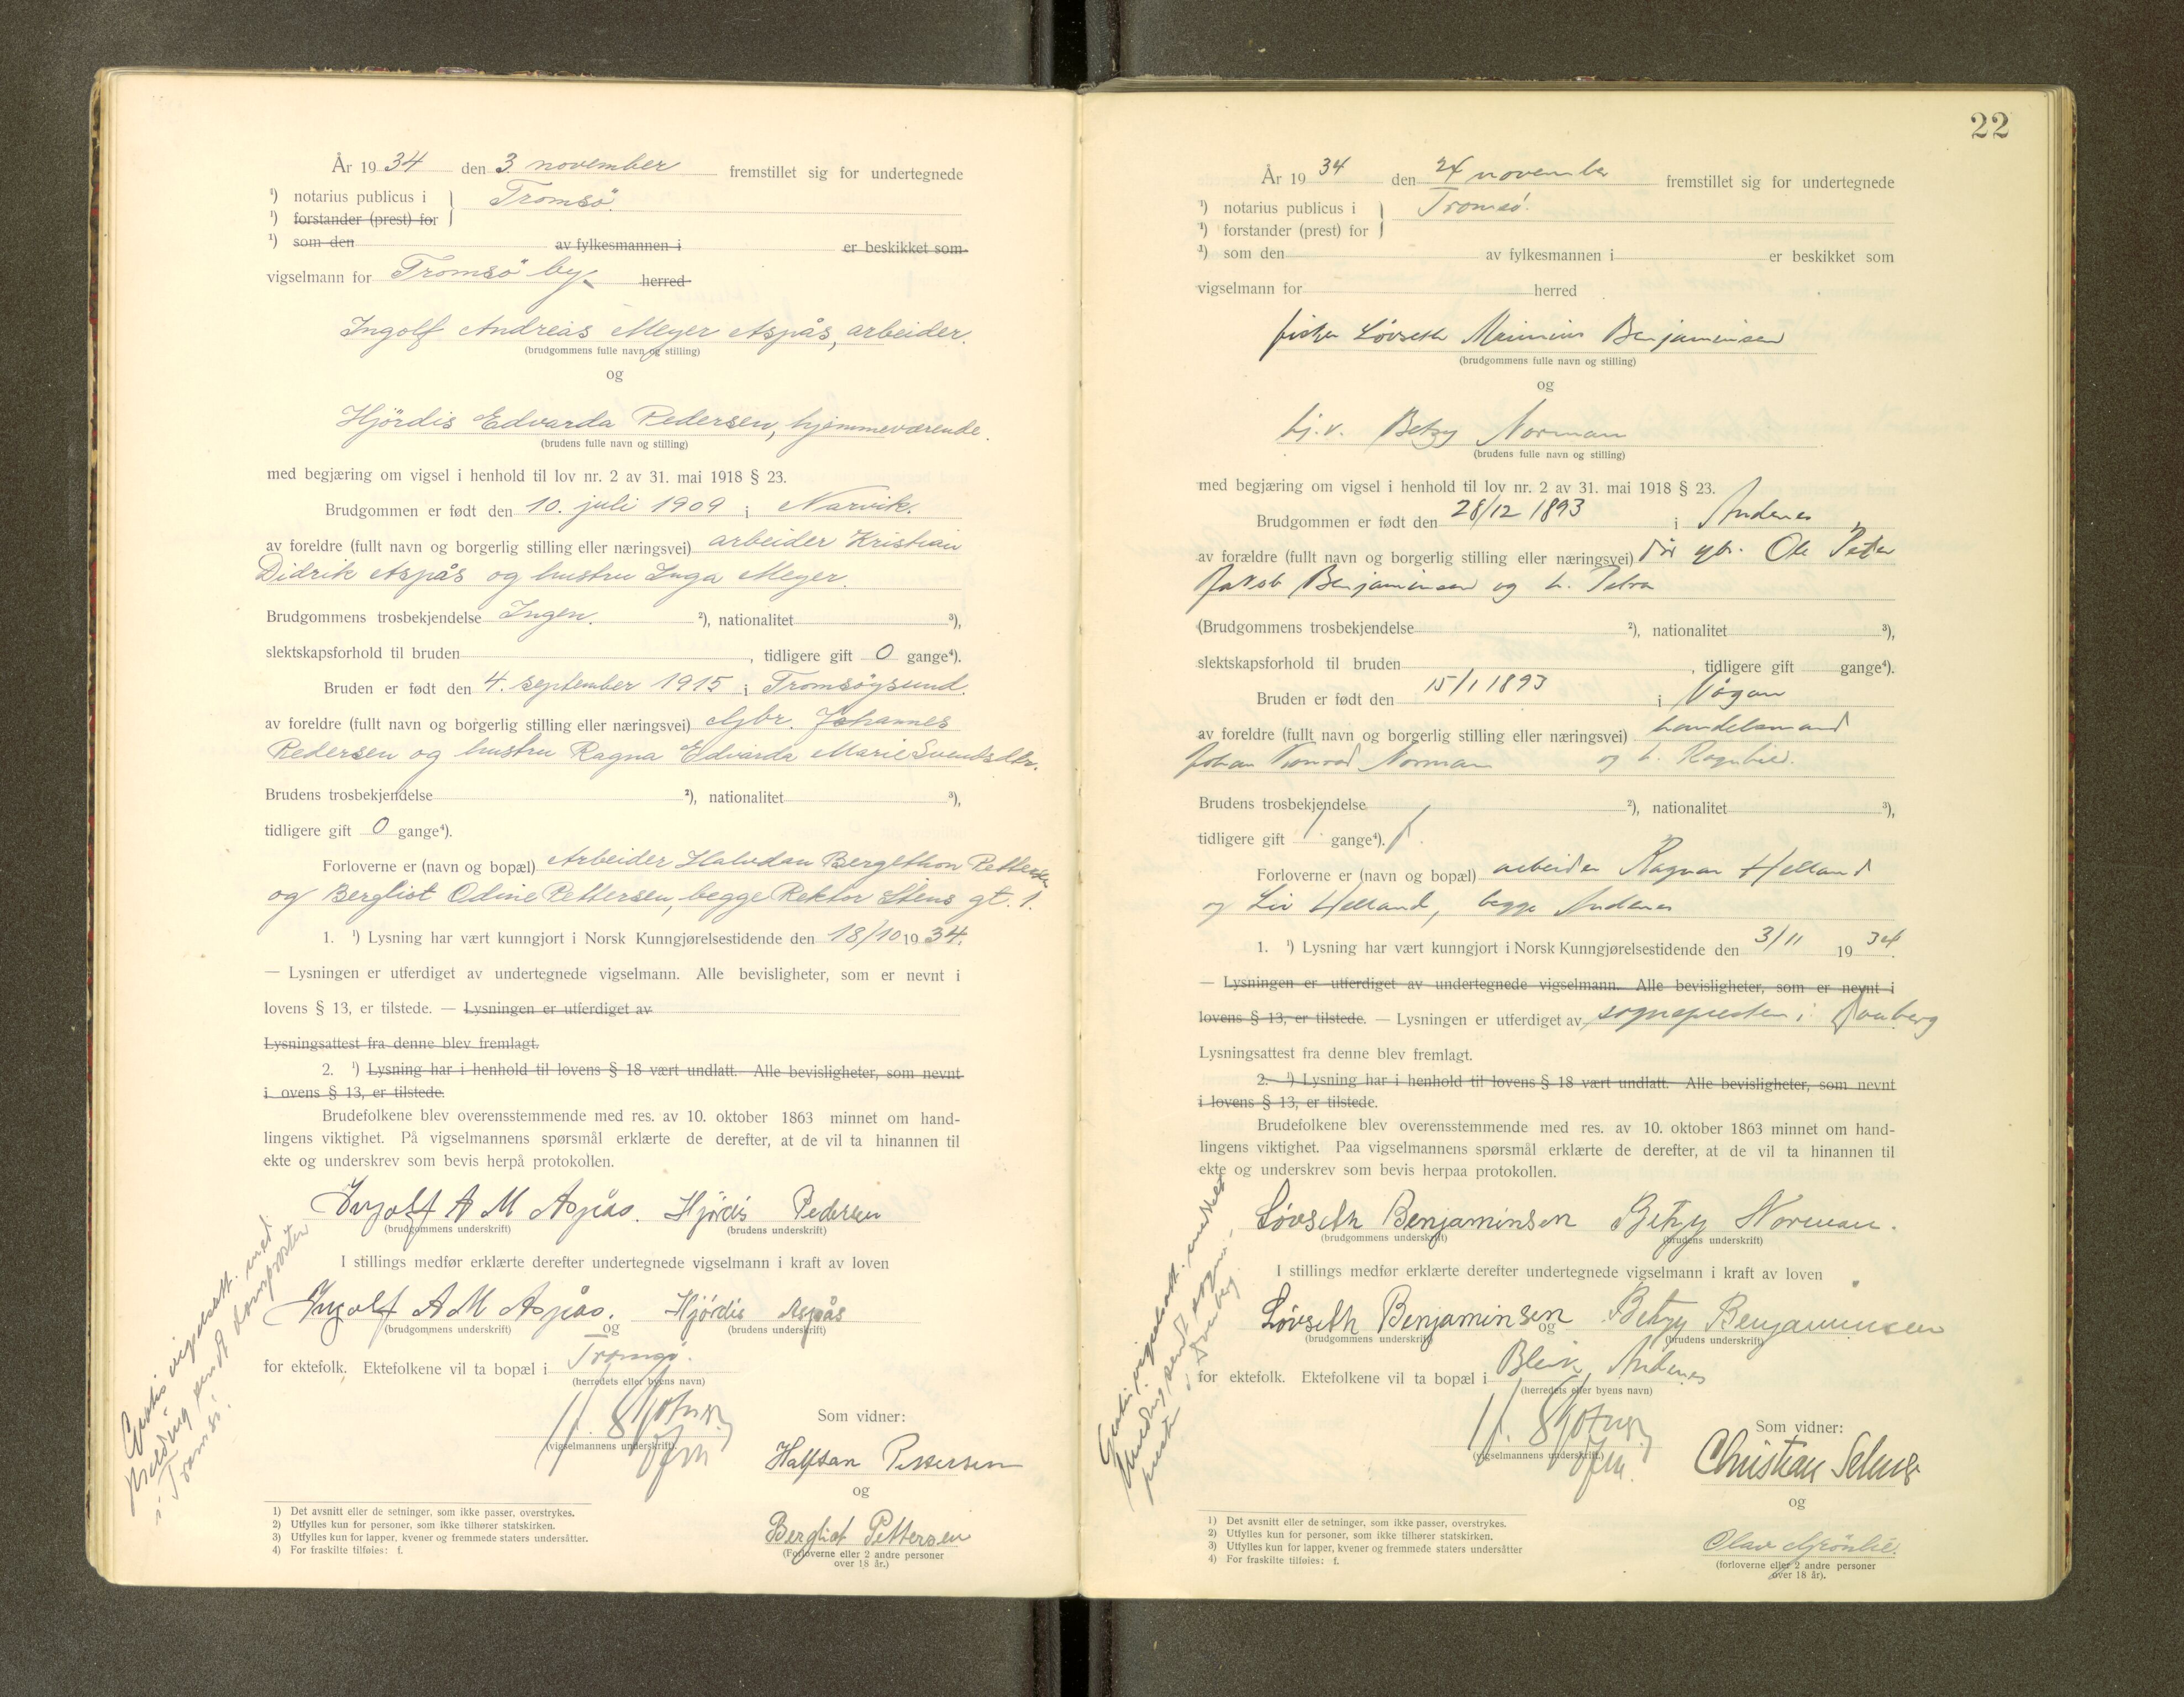 År 19 34 den 3. november fremstillet sig for undertegnede
¹) notarius publicus i } Tromsö.
¹) forstander (prest) for
¹) som den av fylkesmannen i er beskikket som
vigselmann for Tromsö by. herred
Ingolf Andreas Meyer Aspås, arbeider.
(brudgommens fulle navn og stilling)
og
Hjördis Edvarda Pedersen, hjemmeværende.
(brudens fulle navn og stilling)
med begjæring om vigsel i henhold til lov nr. 2 av 31. mai 1918 § 23.
Brudgommen er født den 10. juli 1909 i Narvik.
av foreldre (fullt navn og borgerlig stilling eller næringsvei) arbeider Kristian
Didrik Aspås og hustru Inga Meyer.
Brudgommens trosbekjendelse Ingen. ²), nationalitet ³),
slektskapsforhold til bruden , tidligere gift 0 gange⁴).
Bruden er født den 4. september 1915 i Tromsöysund.
av foreldre (fullt navn og borgerlig stilling eller næringsvei) Gbr. Johannes
Pedersen og hustru Ragna Edvarda Marie Svendsdtr.
Brudens trosbekjendelse ²), nationalitet ³),
tidligere gift 0 gange⁴).
Forloverne er (navn og bopæl) Arbeider Halvdan Bergethon Pettersen
og Bergliot Odine Pettersen, begge Rektor Stens gt. 1.
1. ¹) Lysning har vært kunngjort i Norsk Kunngjørelsestidende den 18/10 19 34.
— Lysningen er utferdiget av undertegnede vigselmann. Alle bevisligheter, som er nevnt i
lovens § 13, er tilstede. — Lysningen er utferdiget av
Lysningsattest fra denne blev fremlagt.
2. ¹) Lysning har i henhold til lovens § 18 vært undlatt. Alle bevisligheter, som nevnt
i ovens § 13, er tilstede.
Brudefolkene blev overensstemmende med res. av 10. oktober 1863 minnet om hand-
lingens viktighet. På vigselmannens spørsmål erklærte de derefter, at de vil ta hinannen til
ekte og underskrev som bevis herpå protokollen.
Ingolf A M Aspås. Hjördis Pedersen
(brudgommens underskrift) (brudens underskrift)
I stillings medfør erklærte derefter undertegnede vigselmann i kraft av loven
Ingolf A M Aspås. og Hjördis Aspås
(brudgommens underskrift) (brudens underskrift)
for ektefolk. Ektefolkene vil ta bopæl i Tromsø.
(herredets eller byens navn)
(vigselmannens underskrift)
Som vidner:
Halfdan Pettersen
og
Bergliot Pettersen
(Forloverne eller 2 andre personer
over 18 år.)
Gratis vigselsatt. med.
Melding sendt domprosten
i Tromsø.
1) Det avsnitt eller de setninger, som ikke passer, overstrykes.
2) Utfylles kun for personer, som ikke tilhører statskirken.
3) Utfylles kun for lapper, kvener og fremmede staters undersåtter.
4) For fraskilte tilføies: f.
22
År 19 34 den 24 november fremstillet sig for undertegnede
¹) notarius publicus i } Tromsø.
¹) forstander (prest) for
¹) som den av fylkesmannen i er beskikket som
vigselmann for herred
fisker Løvseth Benjaminsen
(brudgommens fulle navn og stilling)
og
hj.v. Betzy Norman
(brudens fulle navn og stilling)
med begjæring om vigsel i henhold til lov nr. 2 av 31. mai 1918 § 23.
Brudgommen er født den 28/12 1893 i Andenes
av forældre (fullt navn og borgerlig stilling eller næringsvei) gbr. Ole Peter
Jakob Benjaminsen og h. Petra
(Brudgommens trosbekjendelse ²), nationalitet ³),
slektskapsforhold til bruden , tidligere gift gange⁴).
Bruden er født den 15/1 1893 i Vågan
av foreldre (fullt navn og borgerlig stilling eller næringsvei) handelsmand
Johan Konrad Norman og h. Ragnhild.
Brudens trosbekjendelse ²), nationalitet ³),
tidligere gift 1 gange⁴). f.
Forloverne er (navn og bopæl) arbeider Ragnar Helland
og Liv Helland, begge Andenes
1. ¹) Lysning har vært kunngjort i Norsk Kunngjørelsestidende den 3/11 19 34.
— Lysningen er utferdiget av undertegnede vigselmann. Alle bevisligheter, som er nevnt i
lovens § 13, er tilstede. — Lysningen er utferdiget av sognepresten i Dverberg
Lysningsattest fra denne blev fremlagt.
2. ¹) Lysning har i henhold til lovens § 18 vært undlatt. Alle bevisligheter, som nevnt
i lovens § 13, er tilstede.
Brudefolkene blev overensstemmende med res. av 10. oktober 1863 minnet om hand-
lingens viktighet. Paa vigselmannens spørsmål erklærte de derefter, at de vil ta hinannen til
ekte og underskrev som bevis herpaa protokollen.
Løvseth Benjaminsen Betzy Norman.
(brudgommens underskrift) (brudens underskrift)
I stillings medfør erklærte derefter undertegnede vigselmann i kraft av loven
Løvseth Benjaminsen og Betzy Benjaminsen
(brudgommens underskrift) (brudens underskrift)
for ektefolk. Ektefolkene vil ta bopæl i Bleik, Andenes
(herredets eller byens navn)
(vigselmannens underskrift)
Som vidner:
Christian
og
Olav
(forloverne eller 2 andre personer
over 18 år).
Gratis vigselsatt. meddelt
Melding sendt sogne-
presten i Dverberg.
1) Det avsnitt eller de setninger, som ikke passer, overstrykes.
2) Utfylles kun for personer, som ikke tilhører statskirken.
3) Utfylles kun for lapper, kvener og fremmede staters undersåtter
4) For fraskilte tilføies: f.